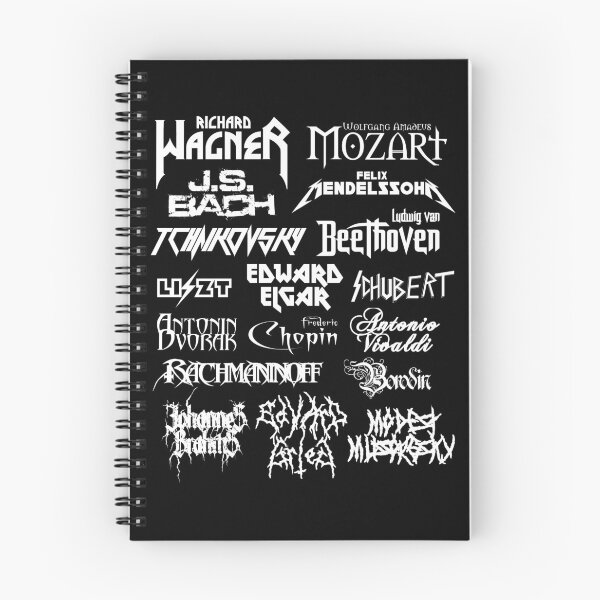 RICHARD
WAGNER
WOLFGANG AMADEUS
MOZART
J.S.
BACH
FELIX
MENDELSSOHN
TCHAIKOVSKY
Ludwig van
Beethoven
LISZT
EDWARD
ELGAR
SCHUBERT
ANTONIN
DVORAK
Frederic
Chopin
Antonio
Vivaldi
RACHMANINOFF
Borodin
Johannes
Brahms
EDVARD
GRIEG
MODEST
MUSSORGSKY